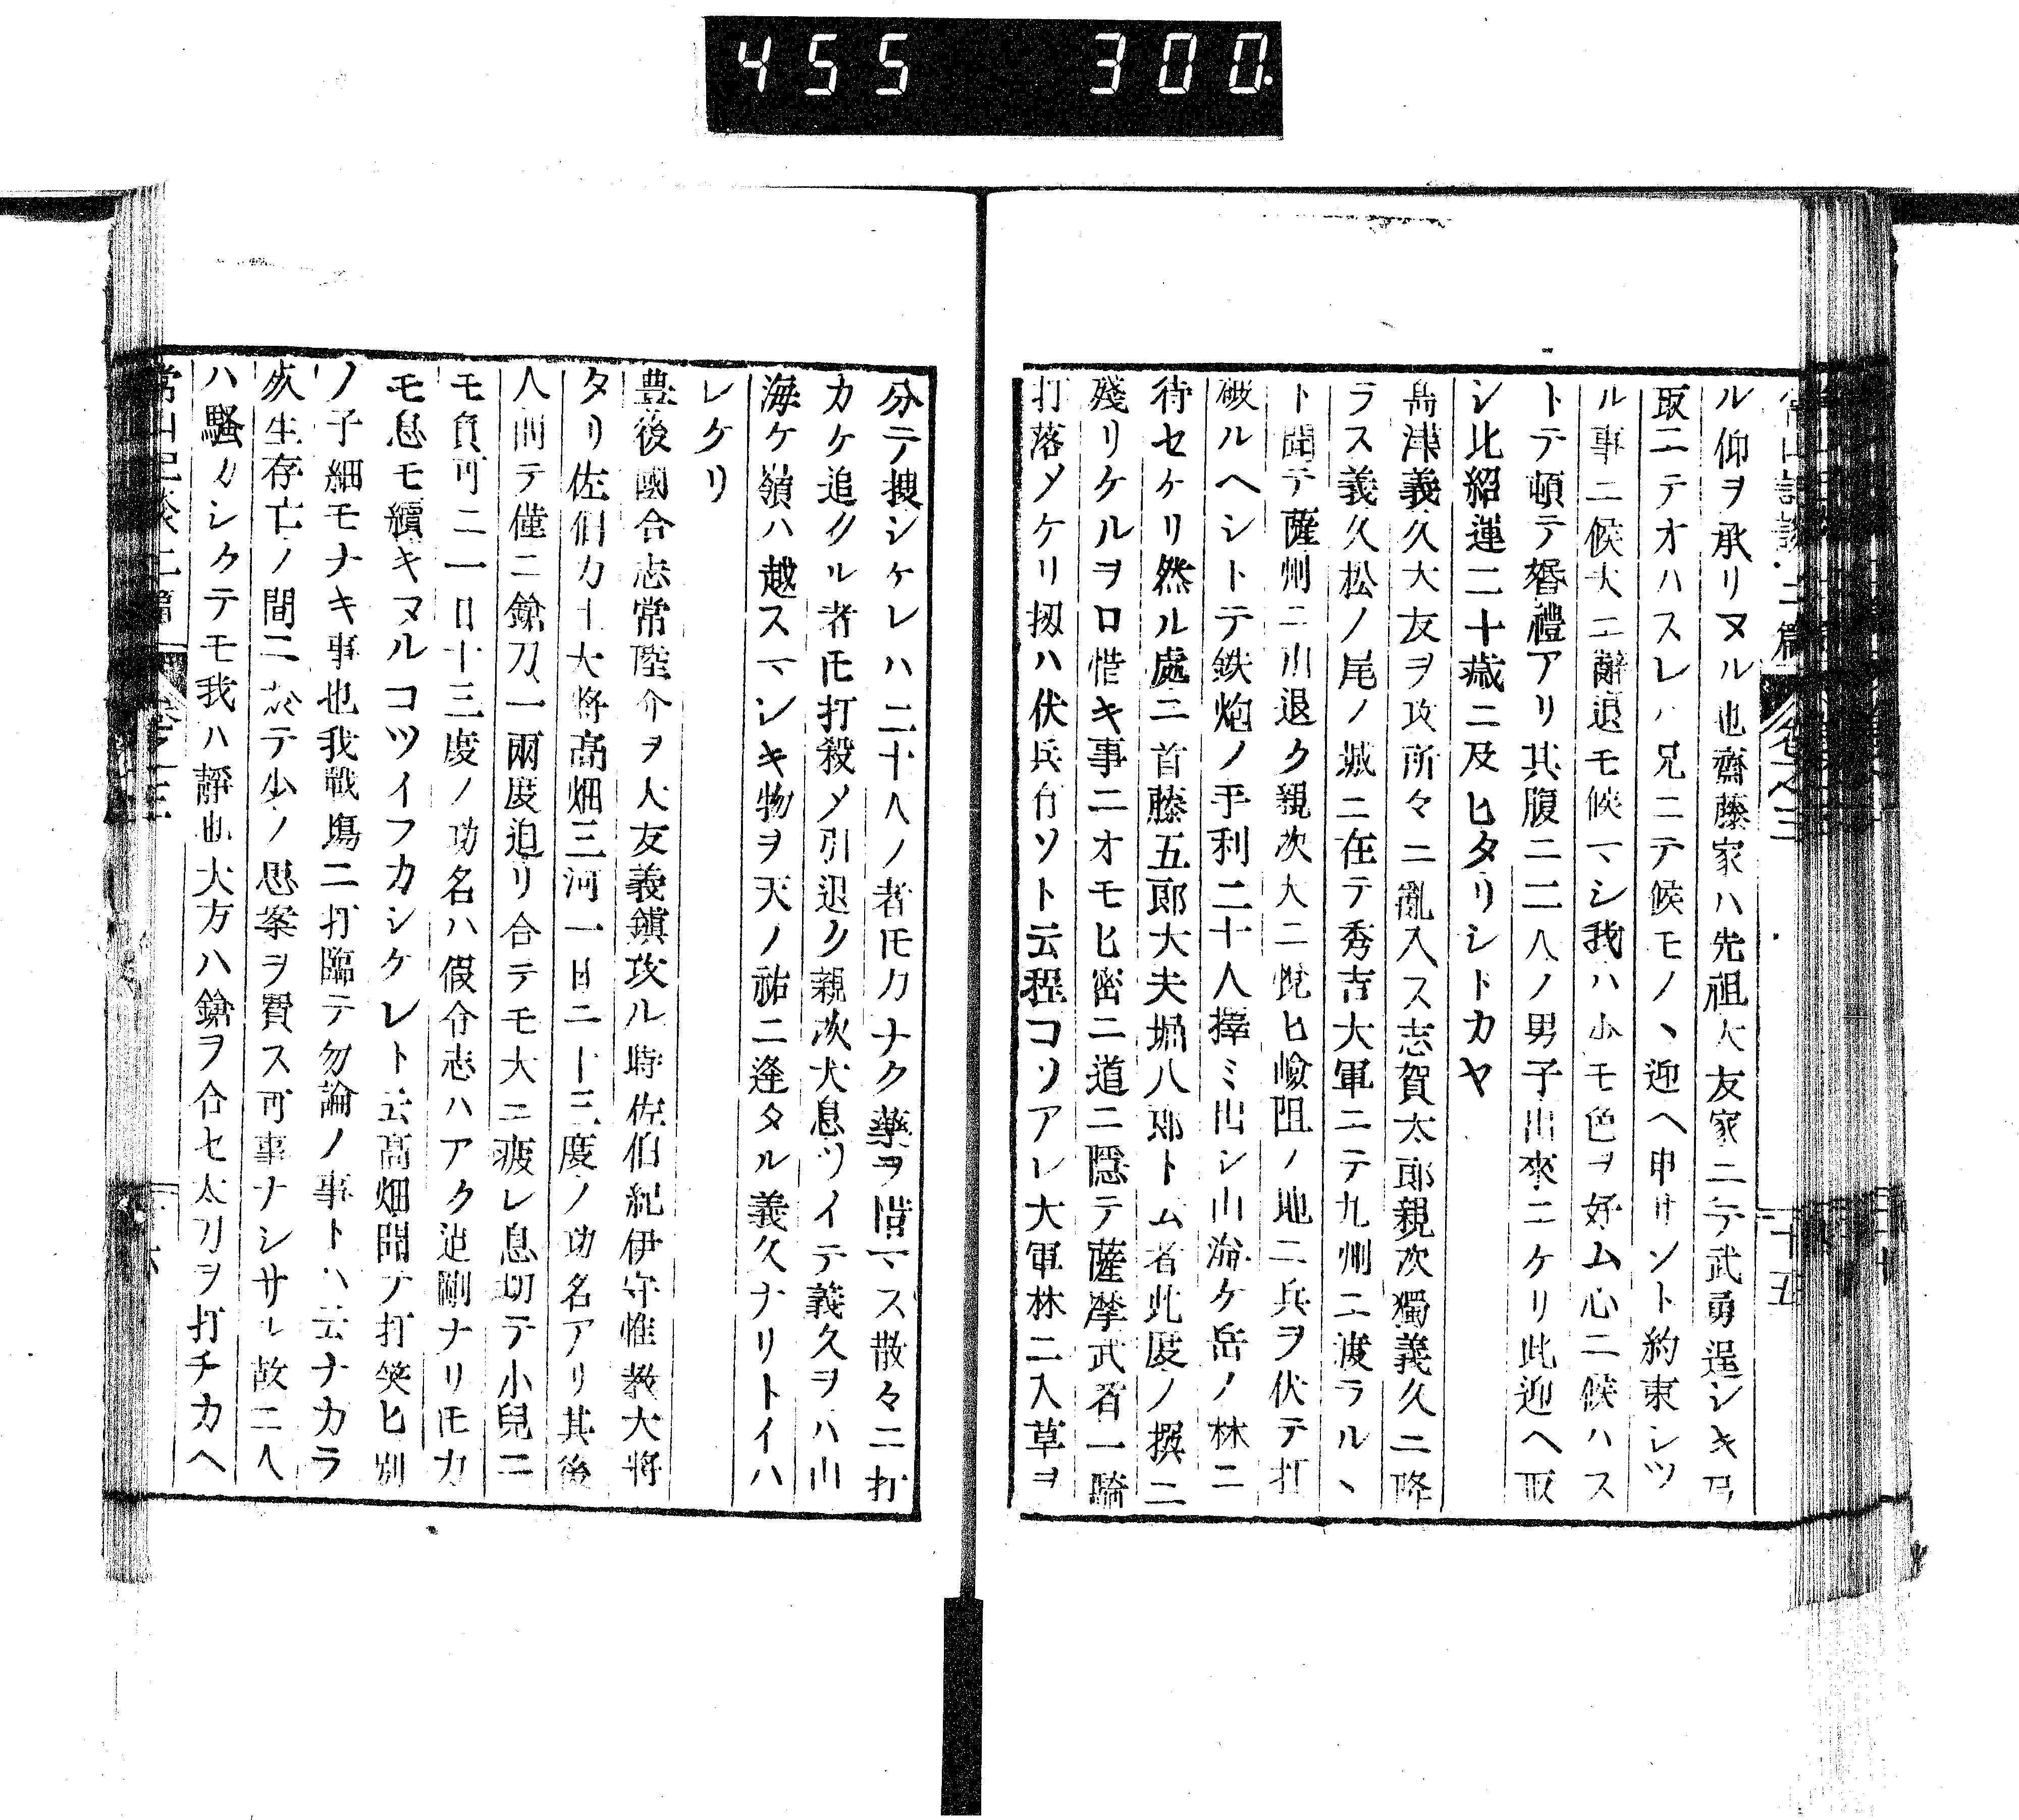 455 300.
常山記談 二篇 卷之三 十五
ル仰ヲ承リヌル也齋藤家ハ先祖大友家ニテ武勇逞シキ弓
取ニテオハスレハ兄ニテ候モノヽ迎ヘ申サント約束シツ
ル事ニ候大ニ辭退モ候マシ我ハ少モ色ヲ好ム心ニ候ハス
トテ頓テ婚禮アリ其腹ニ二人ノ男子出來ニケリ此迎ヘ取
シ比紹運二十歳ニ及ヒタリシトカヤ
島津義久大友ヲ攻所々ニ亂入ス志賀太郎親次獨義久ニ降
ラス義久松ノ尾ノ城ニ在テ秀吉大軍ニテ九州ニ渡ラルヽ
ト聞テ薩州ニ引退ク親次大ニ悅ヒ嶮阻ノ地ニ兵ヲ伏テ打
破ルヘシトテ鉄炮ノ手利二十人擇ミ出シ山海ケ岳ノ林ニ
待セケリ然ル處ニ首藤五郎大夫堀八郎トム者此度ノ撰ニ
殘リケルヲ口惜キ事ニオモヒ密ニ道ニ隱テ薩摩武者一騎
打落メケリ扨ハ伏兵有ソト云程コソアレ大軍林ニ入草ヲ
分テ搜シケレハ二十人ノ者モ力ナク藥ヲ惜マス散々ニ打
カケ追クル者𪜈打殺メ引退ク親次大息ツイテ義久ヲハ山
海ケ嶺ハ越スマシキ物ヲ天ノ祐ニ逢タル義久ナリトイハ
レケリ
豊後國合志常陸介ヲ大友義鎭攻ル時佐伯紀伊守惟教大將
タリ佐伯カ士大將高畑三河一日ニ十三度ノ功名アリ其後
人問テ僅ニ鎗刀一兩度迫リ合テモ大ニ疲レ息切テ小兒ニ
モ負可ニ一日十三度ノ功名ハ假令志ハアク迄剛ナリ𪜈力
モ息モ續キヌルコツイフカシケレト云高畑聞テ打笑ヒ別
ノ子細モナキ事也我戰塲ニ打臨テ勿論ノ事トハ云ナカラ
死生存亡ノ間ニ於テ少ノ思案ヲ費ス可事ナシサル故ニ人
ハ騷カシクテモ我ハ靜也大方ハ鎗ヲ合セ太刀ヲ打チカヘ
常山記談 二篇 卷之三